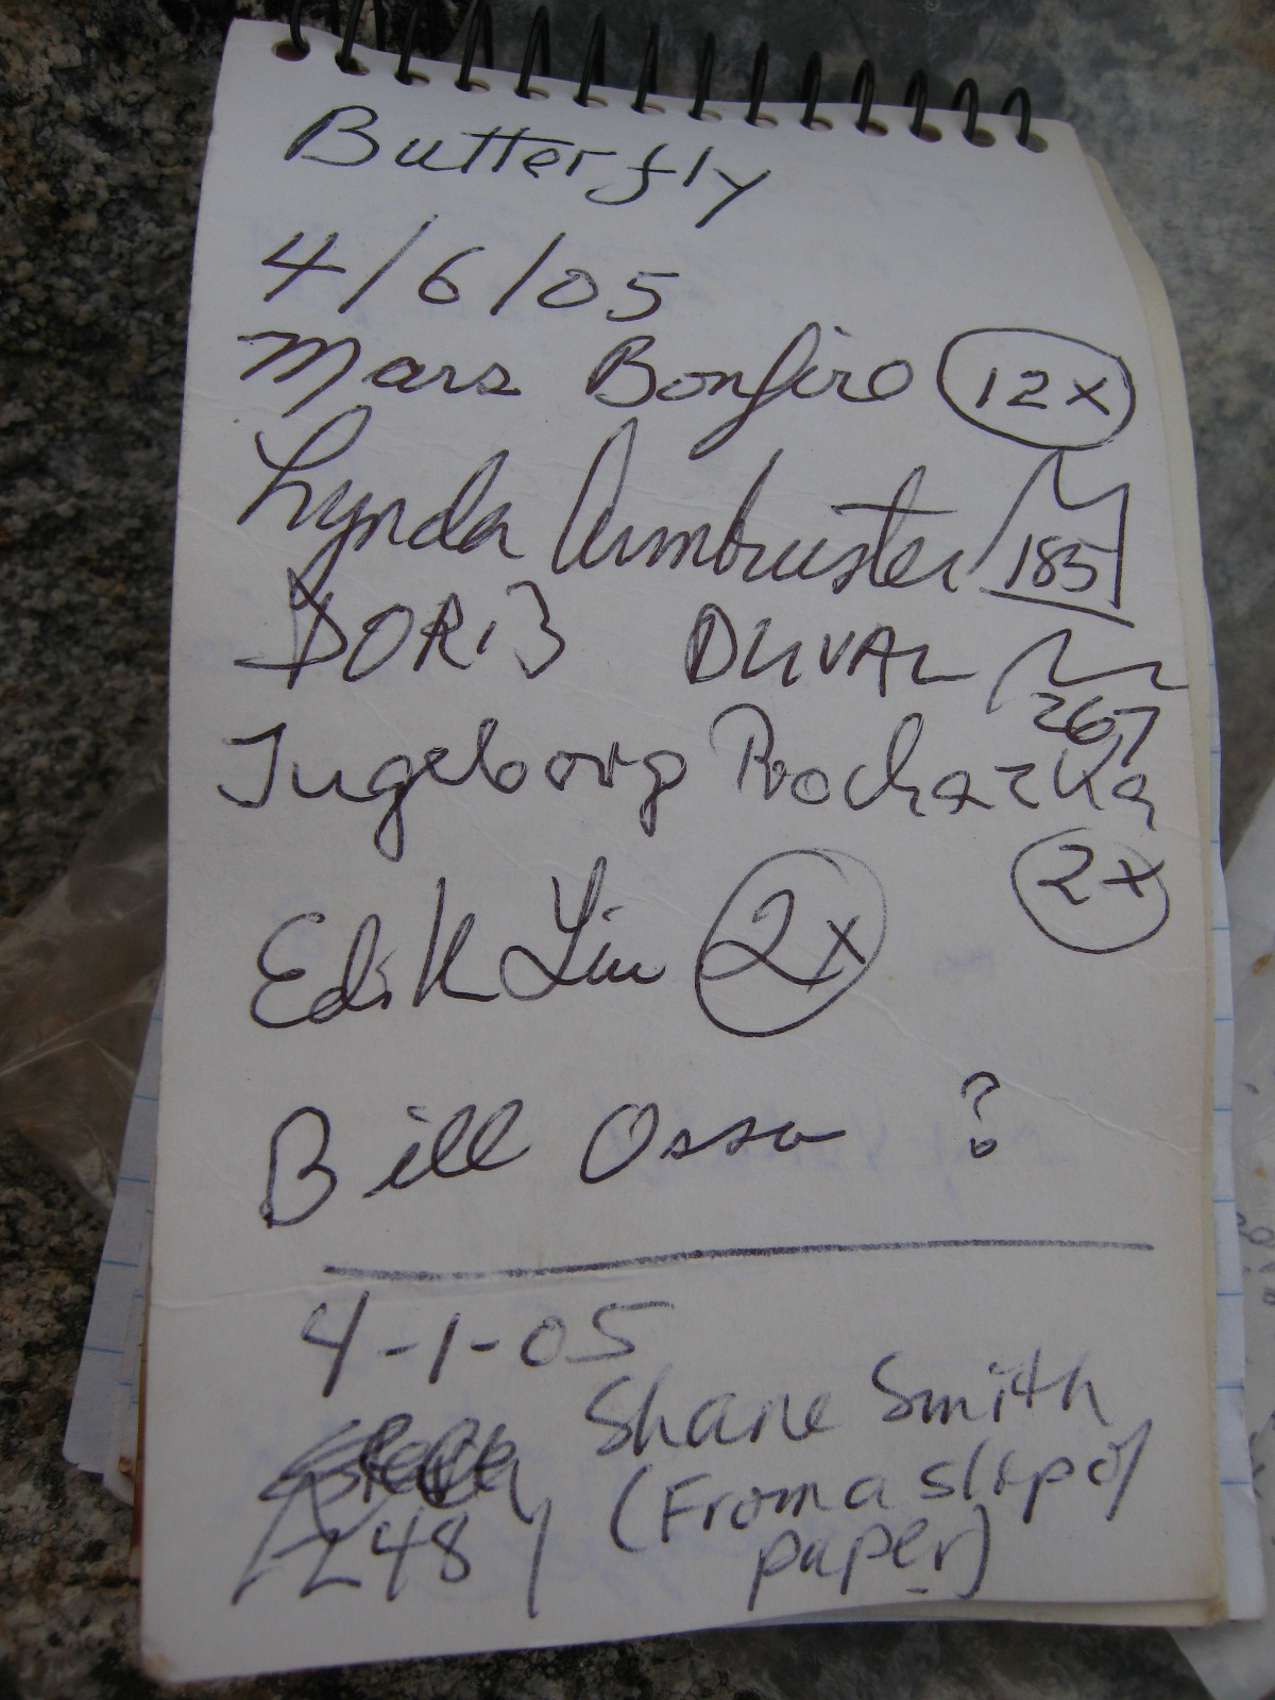 Butterfly
4/6/05
Mars Bonfire 12x
Lynda Armbruster 185
DORIS DUVAL 267
Ingeborg Prochazka
2x
Edik Liu 2x
Bill Ossa ?
4-1-05
Shane Smith
248 (From a slip of
paper)